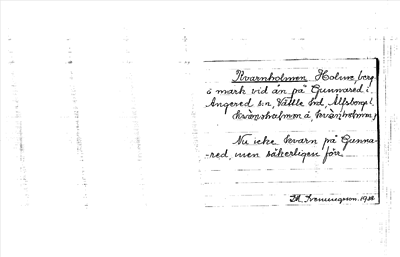 Kvarnholmen Holme, berg
o mark vid ån på Gunnared i
Angered s:n, Vättle hd, Älfsborgs l.
Kvarnholmen
Nu icke kvarn på Gunna-
-red, men säkerligen förr.
1924